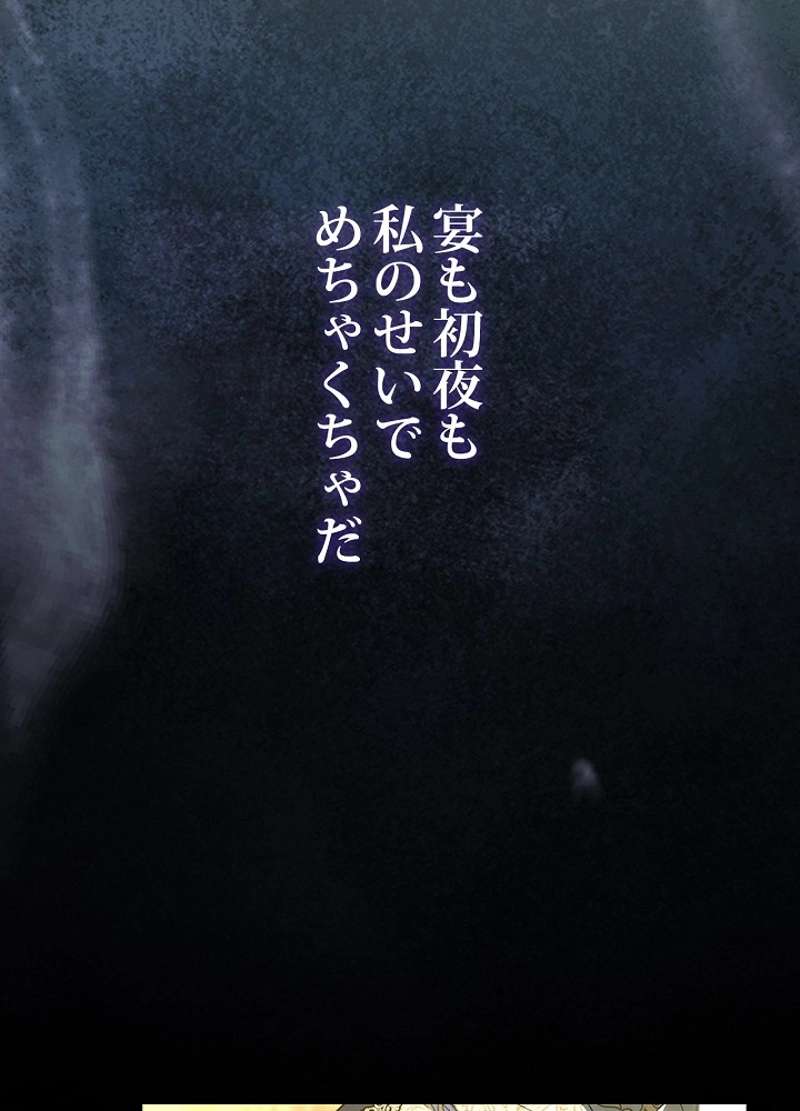 宴も初夜も
私のせいで
めちゃくちゃだ